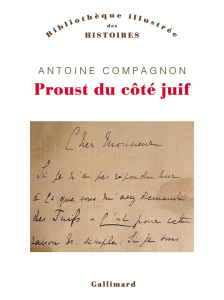 Bibliothèque illustrée
des
HISTOIRES
ANTOINE COMPAGNON
Proust du côté juif
Cher Monsieur
Si je n'ai pas répondu hier
à ce que vous m'avez demandé
des Juifs – c'est pour cette
raison très simple: Si je suis
Gallimard